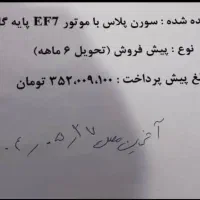 ده شده : سورن پلاس با موتور EF7 پایه گا
نوع : پیش فروش (تحویل ۶ ماهه)
غ پیش پرداخت : ۳۵۲.۰۰۹.۱۰۰ تومان
آخرین